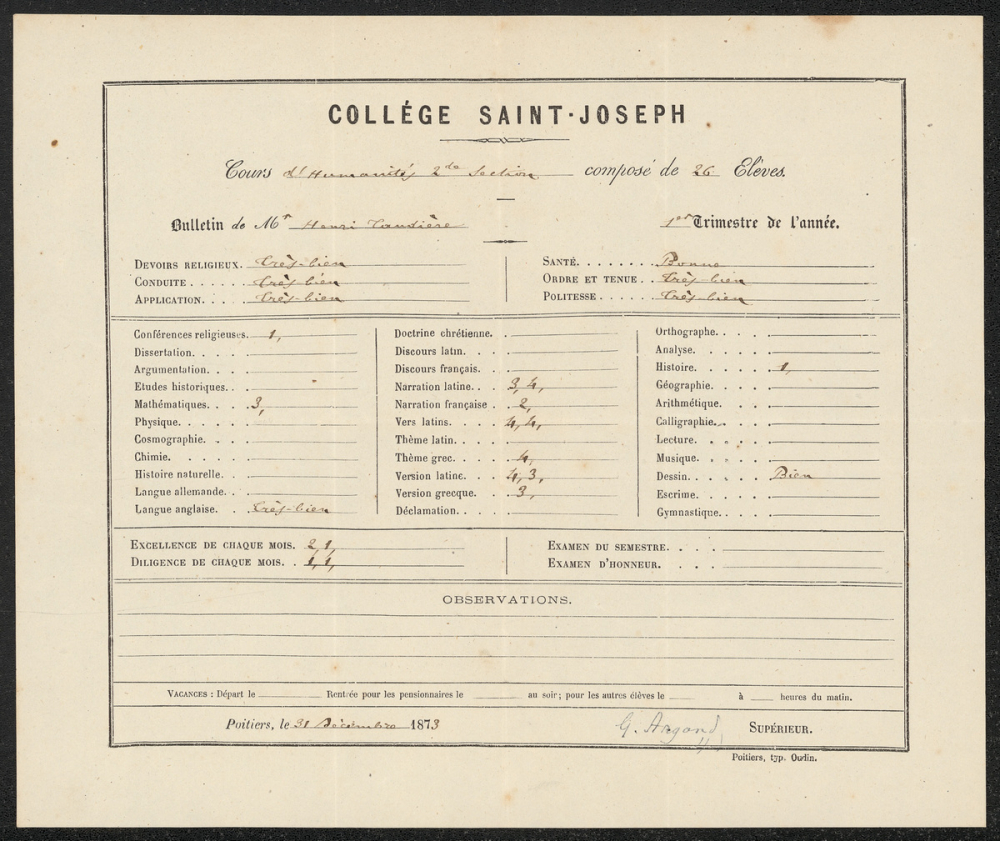 COLLÉGE SAINT-JOSEPH
Cours d'Humanités 2de Section composé de 26 Elèves.
Bulletin de Mr Henri 1er Trimestre de l'année.
DEVOIRS RELIGIEUX. Très-bien
CONDUITE...... Très-bien
APPLICATION..... Très-bien
SANTÉ........ Bonne
ORDRE ET TENUE.. Très-bien
POLITESSE..... Très-bien
Conférences religieuses. 1,
Dissertation....
Argumentation....
Etudes historiques..
Mathématiques... 3,
Physique.....
Cosmographie....
Chimie.....
Histoire naturelle...
Langue allemande...
Langue anglaise.. Très-bien
Doctrine chrétienne..
Discours latin...
Discours français...
Narration latine... 3, 4,
Narration française.. 2,
Vers latins.... 4, 4,
Thème latin....
Thème grec.... 4,
Version latine... 4, 3,
Version grecque... 3,
Déclamation....
Orthographe.....
Analyse......
Histoire...... 1,
Géographie.....
Arithmétique....
Calligraphie.....
Lecture......
Musique......
Dessin..... Bien
Escrime......
Gymnastique.....
EXCELLENCE DE CHAQUE MOIS. 2, 1,
DILIGENCE DE CHAQUE MOIS.. 1, 1,
EXAMEN DU SEMESTRE....
EXAMEN D'HONNEUR....
OBSERVATIONS.
VACANCES : Départ le Rentrée pour les pensionnaires le au soir; pour les autres élèves le à heures du matin.
Poitiers, le 31 Décembre 1873
G. Argand SUPÉRIEUR.
Poitiers, typ. Oudin.